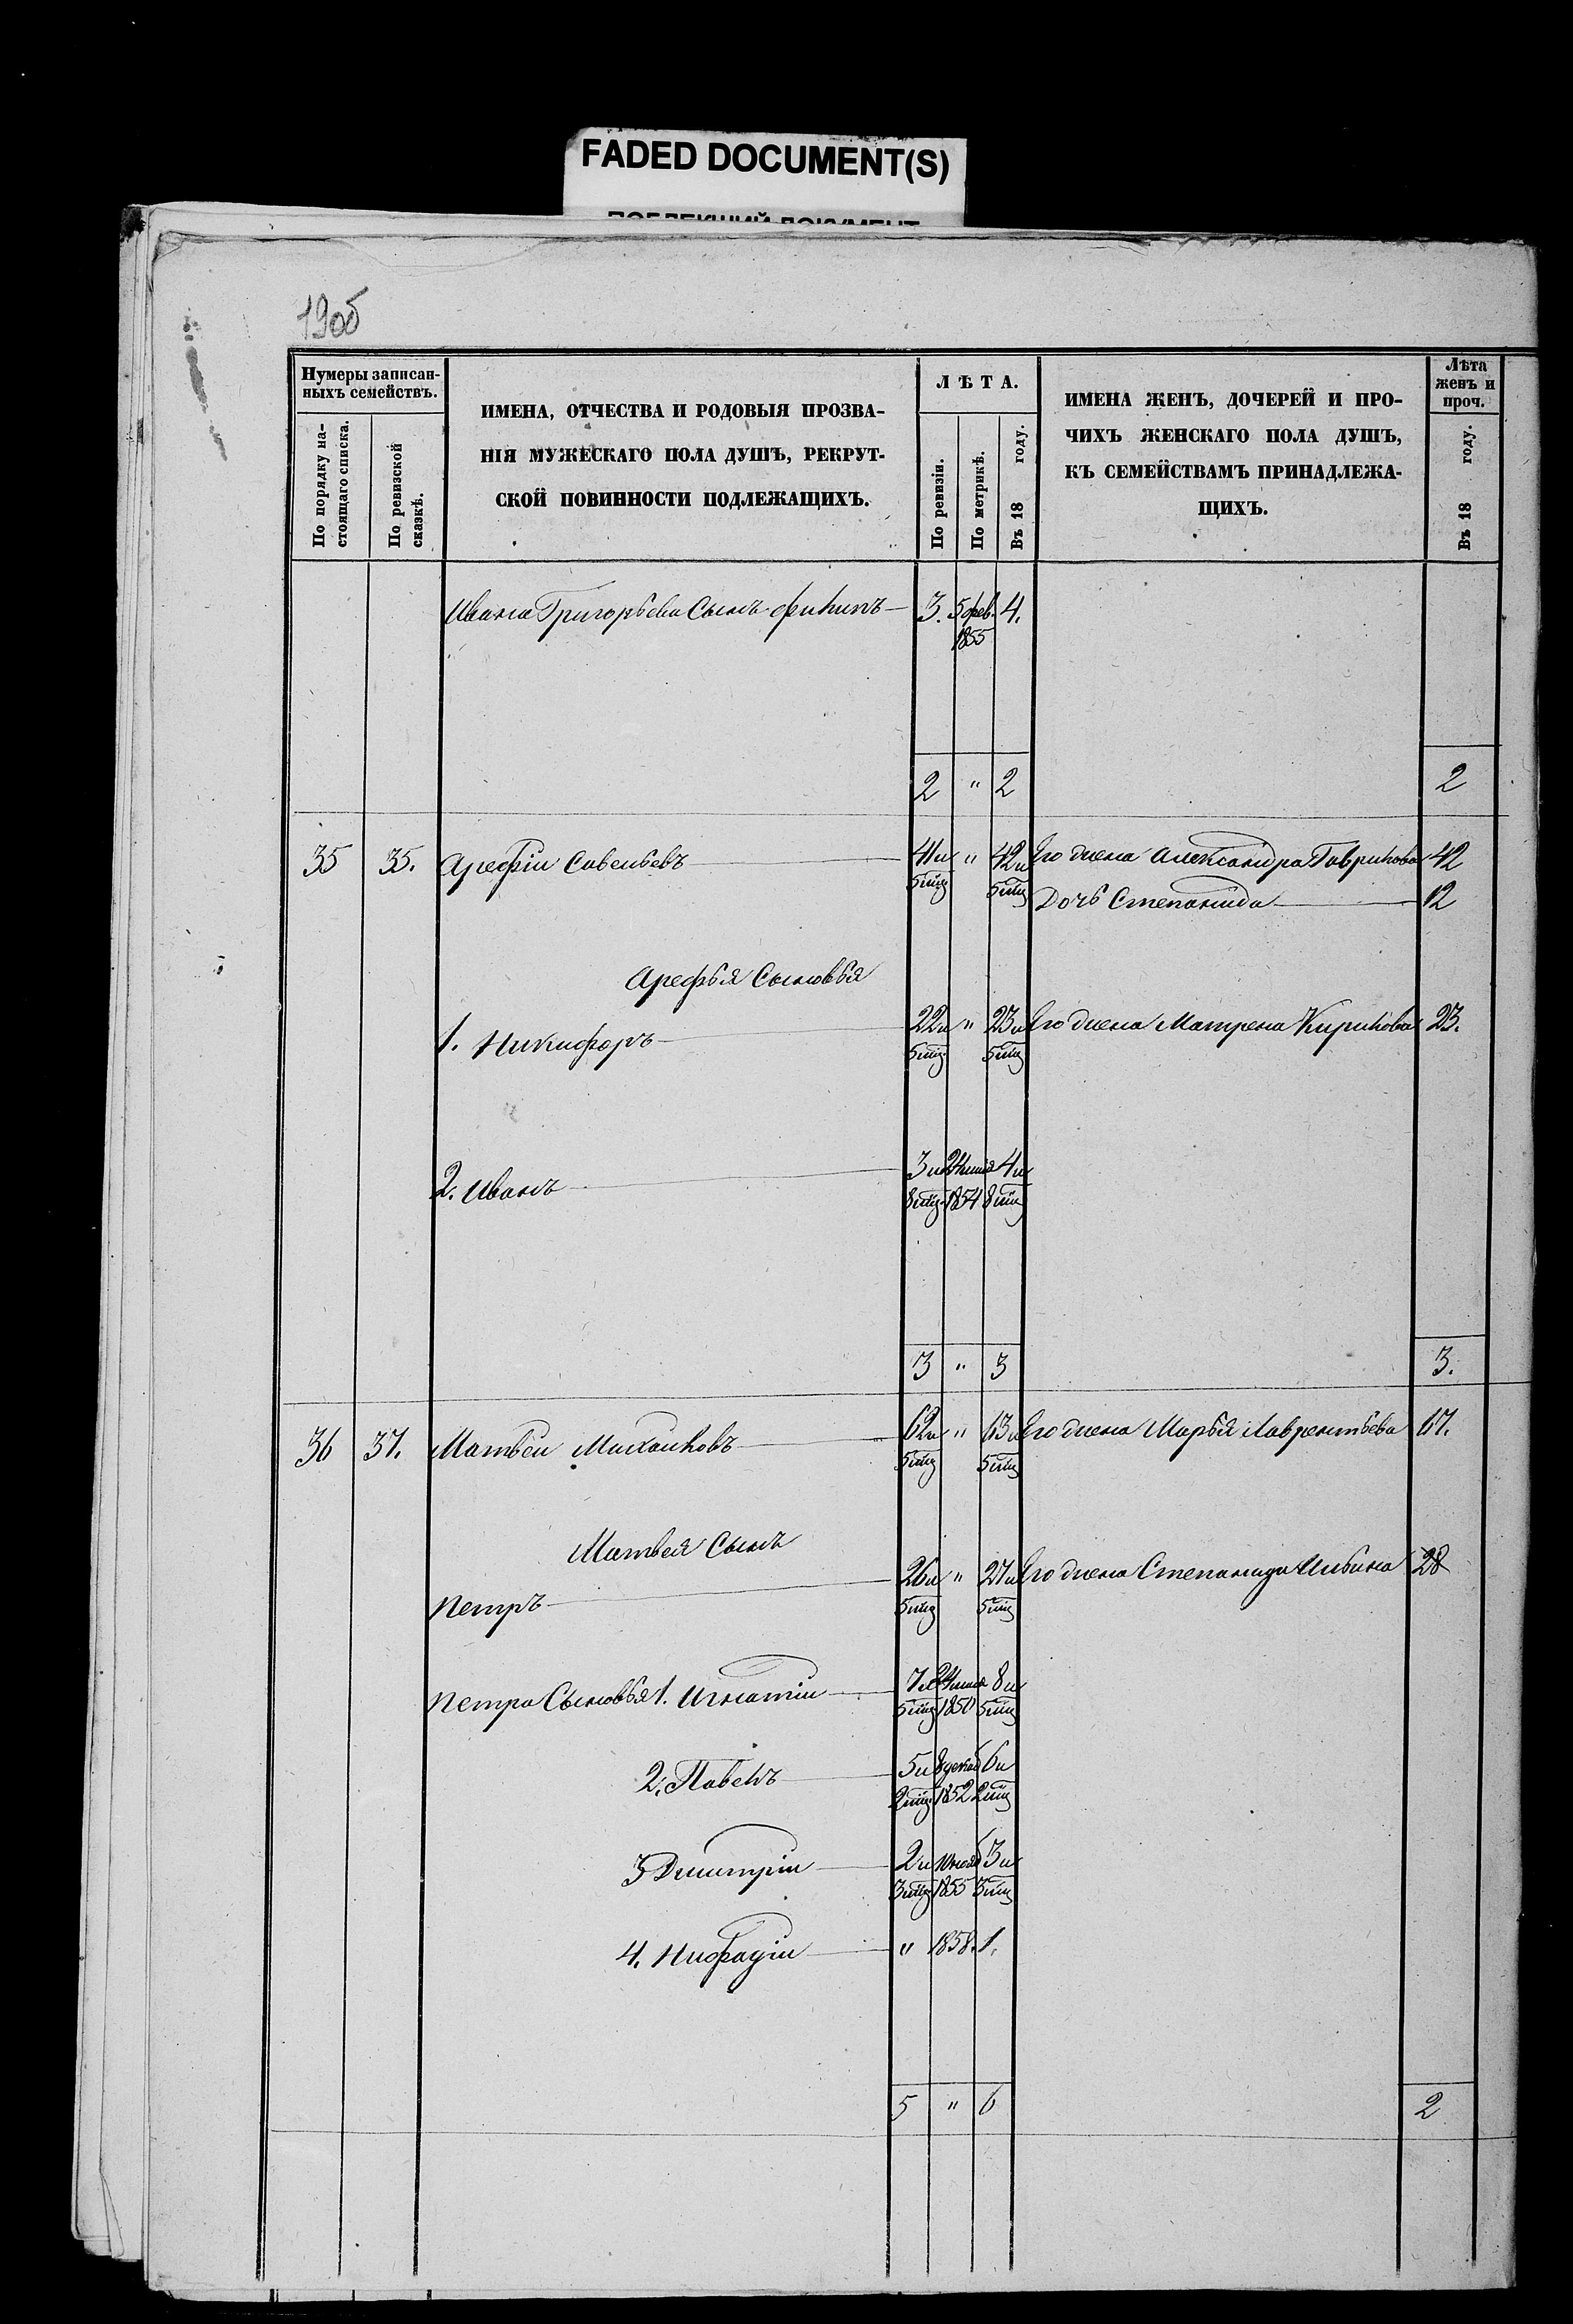 FADED DOCUMENT(S)
190б
Нумеры записан-
ныхъ семействъ.
По порядку на-
стоящаго списка.
По ревизской
сказкѣ.
ИМЕНА, ОТЧЕСТВА И РОДОВЫЯ ПРОЗВА-
НІЯ МУЖЕСКАГО ПОЛА ДУШЪ, РЕКРУТ-
СКОЙ ПОВИННОСТИ ПОДЛЕЖАЩИХЪ.
ЛѢТА.
По ревизіи.
По метрикѣ.
Въ 18 году.
ИМЕНА ЖЕНЪ, ДОЧЕРЕЙ И ПРО-
ЧИХЪ ЖЕНСКАГО ПОЛА ДУШЪ,
КЪ СЕМЕЙСТВАМЪ ПРИНАДЛЕЖА-
ЩИХЪ.
Лѣта
женъ и
проч.
Въ 18 году.
Ивана Григорьева Сынъ Филипъ 3. 5 фев. 4.
1855
2 " 2 2
35 35. Арефiй Савельевъ 41 и " 42 и Его жена Александра Гаврилова 42
5 мц 5 мц Дочь Степанида 12
Арефья Сыновья
1. Никифоръ 22 и " 23 и Его жена Матрена Кирилова 23.
5 мц. 5 мц
2. Иванъ 3 и 24 4 и
8 мц. 1854 8 мц
3 " 3 3.
36 37. Матвей Михайловъ 62 и " 63 и Его жена Марья Лаврентьева 67.
5 мц 5 мц
Матвея Сынъ
Петръ 26 и " 27 и Его жена Степанида 28
5 мц 5 мц
Петра Сыновья 1. Игнатiй 7 и 24 8 и
5 мц 1850 5 мц
2. Павелъ 5 и 8 декаб 6 и
2 мц. 1852 2 мц
3 Дмитрiй 2 и 3 и
3 мц 1855 3 мц
4. " 1858. 1.
5 " 6 2